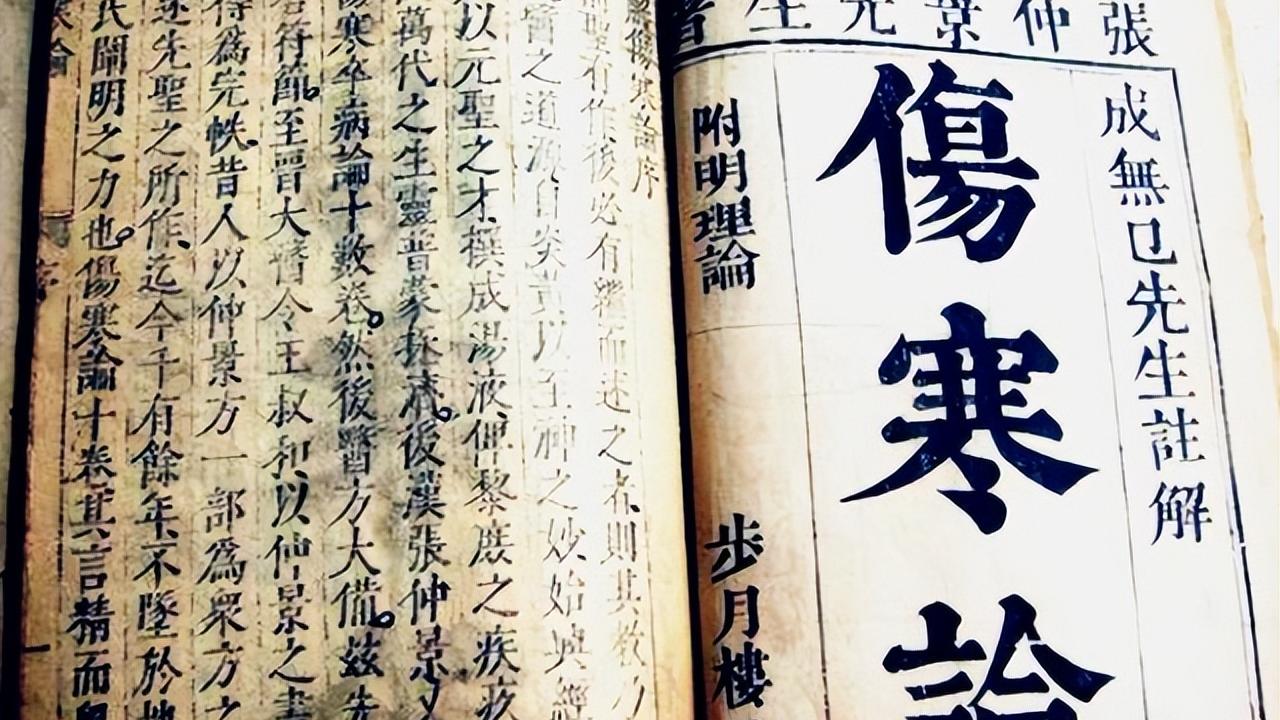 張仲景先生著
成無已先生註解
傷寒論
附明理論
步月樓
解傷寒論序
聖有作後必有繼而述之者則其教乃
醫之道源自炎黃以至神之妙始興經
以元聖之才撰成湯液俾黎庶之疾疚
萬代之生靈普蒙拯濟後漢張仲景又
傷寒卒病論十數卷然後醫方大備茲先
若符節至晉太醫令王叔和以仲景之書
得為完帙昔人以仲景方一部為衆方之
述先聖之所作迄今千有餘年不墜於地
氏闡明之力也傷寒論十卷其言精而奧